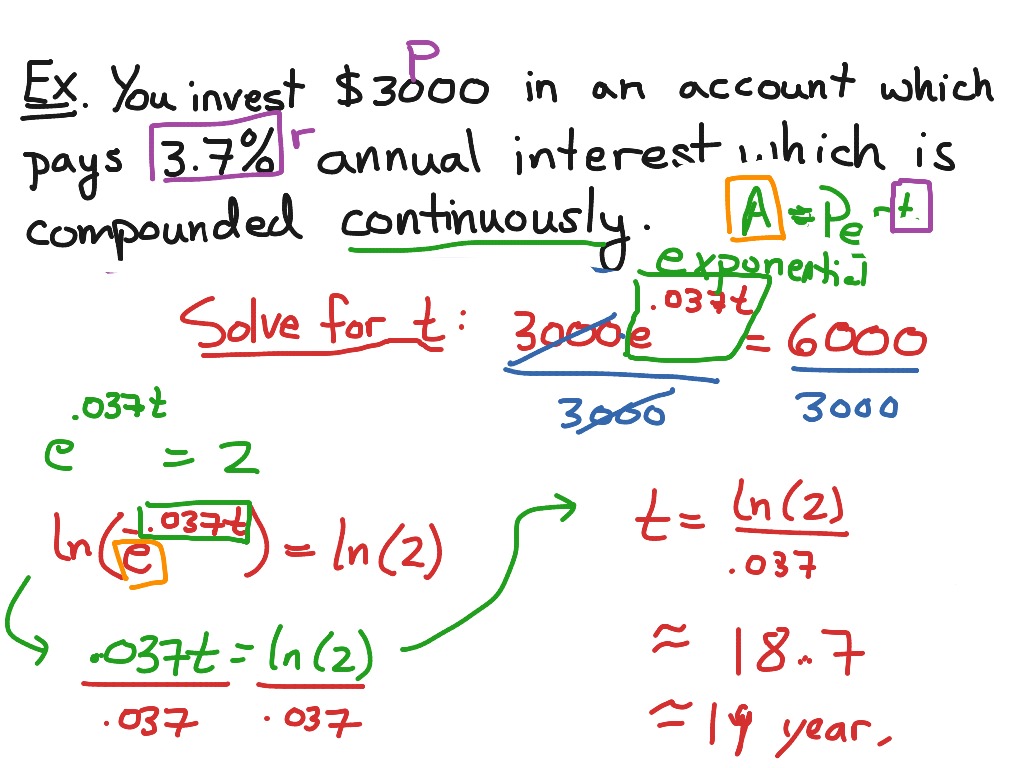 P
Ex. You invest $3000 in an account which
pays 3.7% r annual interest which is
compounded continuously. A = Pe^rt
exponential
Solve for t: 3000e^.037t = 6000
3000 3000
e^.037t = 2
ln(e^.037t) = ln(2)
.037t = ln(2)
.037 .037
t = ln(2)
.037
≈ 18.7
≈ 19 year